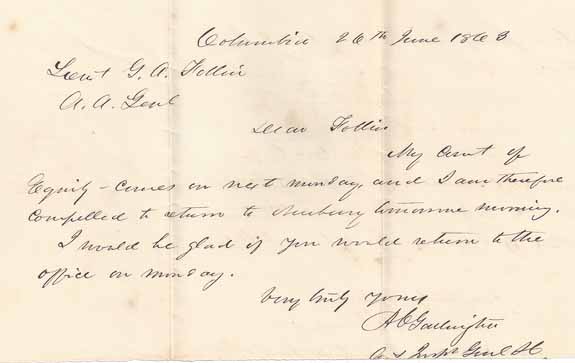 Columbia 26th June 1863
Lieut G. A. Follin
A. A. Genl
Dear Follin
My Court of
Equity - comes on next monday, and I am therefore
compelled to return to Newberry tomorrow morning.
I would be glad if you would return to the
office on monday.
Very truly yours
A C Garlington
A & Inspt Genl SC